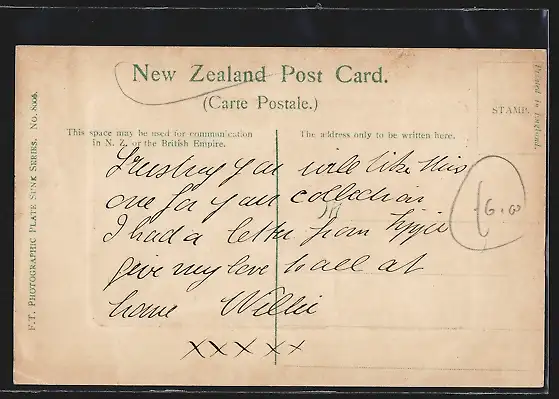 New Zealand Post Card.
(Carte Postale.)
This space may be used for communication
in N. Z. or the British Empire.
The address only to be written here.
STAMP.
Printed in England.
F.T. PHOTOGRAPHIC PLATE SUNK SERIES. No. 8006.
Trusting you will like this
one for your collection
I had a letter from
give my love to all at
home Willie
XXXXX
6.00